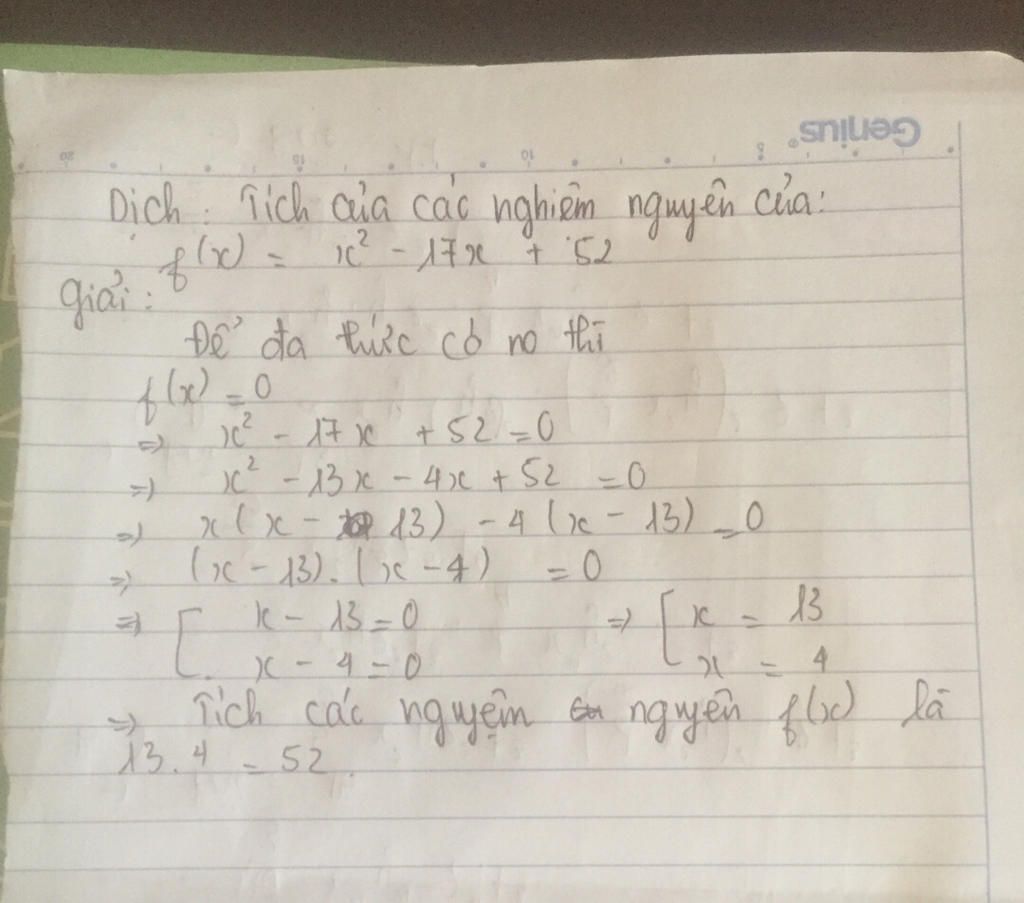 Genius®
20 15 10 5
Dịch : Tích của các nghiệm nguyên của:
f(x) = x² - 17x + 52
Giải :
Để đa thức có no thì
f(x) = 0
=> x² - 17x + 52 = 0
=> x² - 13x - 4x + 52 = 0
=> x(x - 13) - 4(x - 13) = 0
=> (x - 13).(x - 4) = 0
=> [ x - 13 = 0 => [ x = 13
x - 4 = 0 x = 4
=> Tích các nguyệm nguyên f(x) là
13.4 = 52.